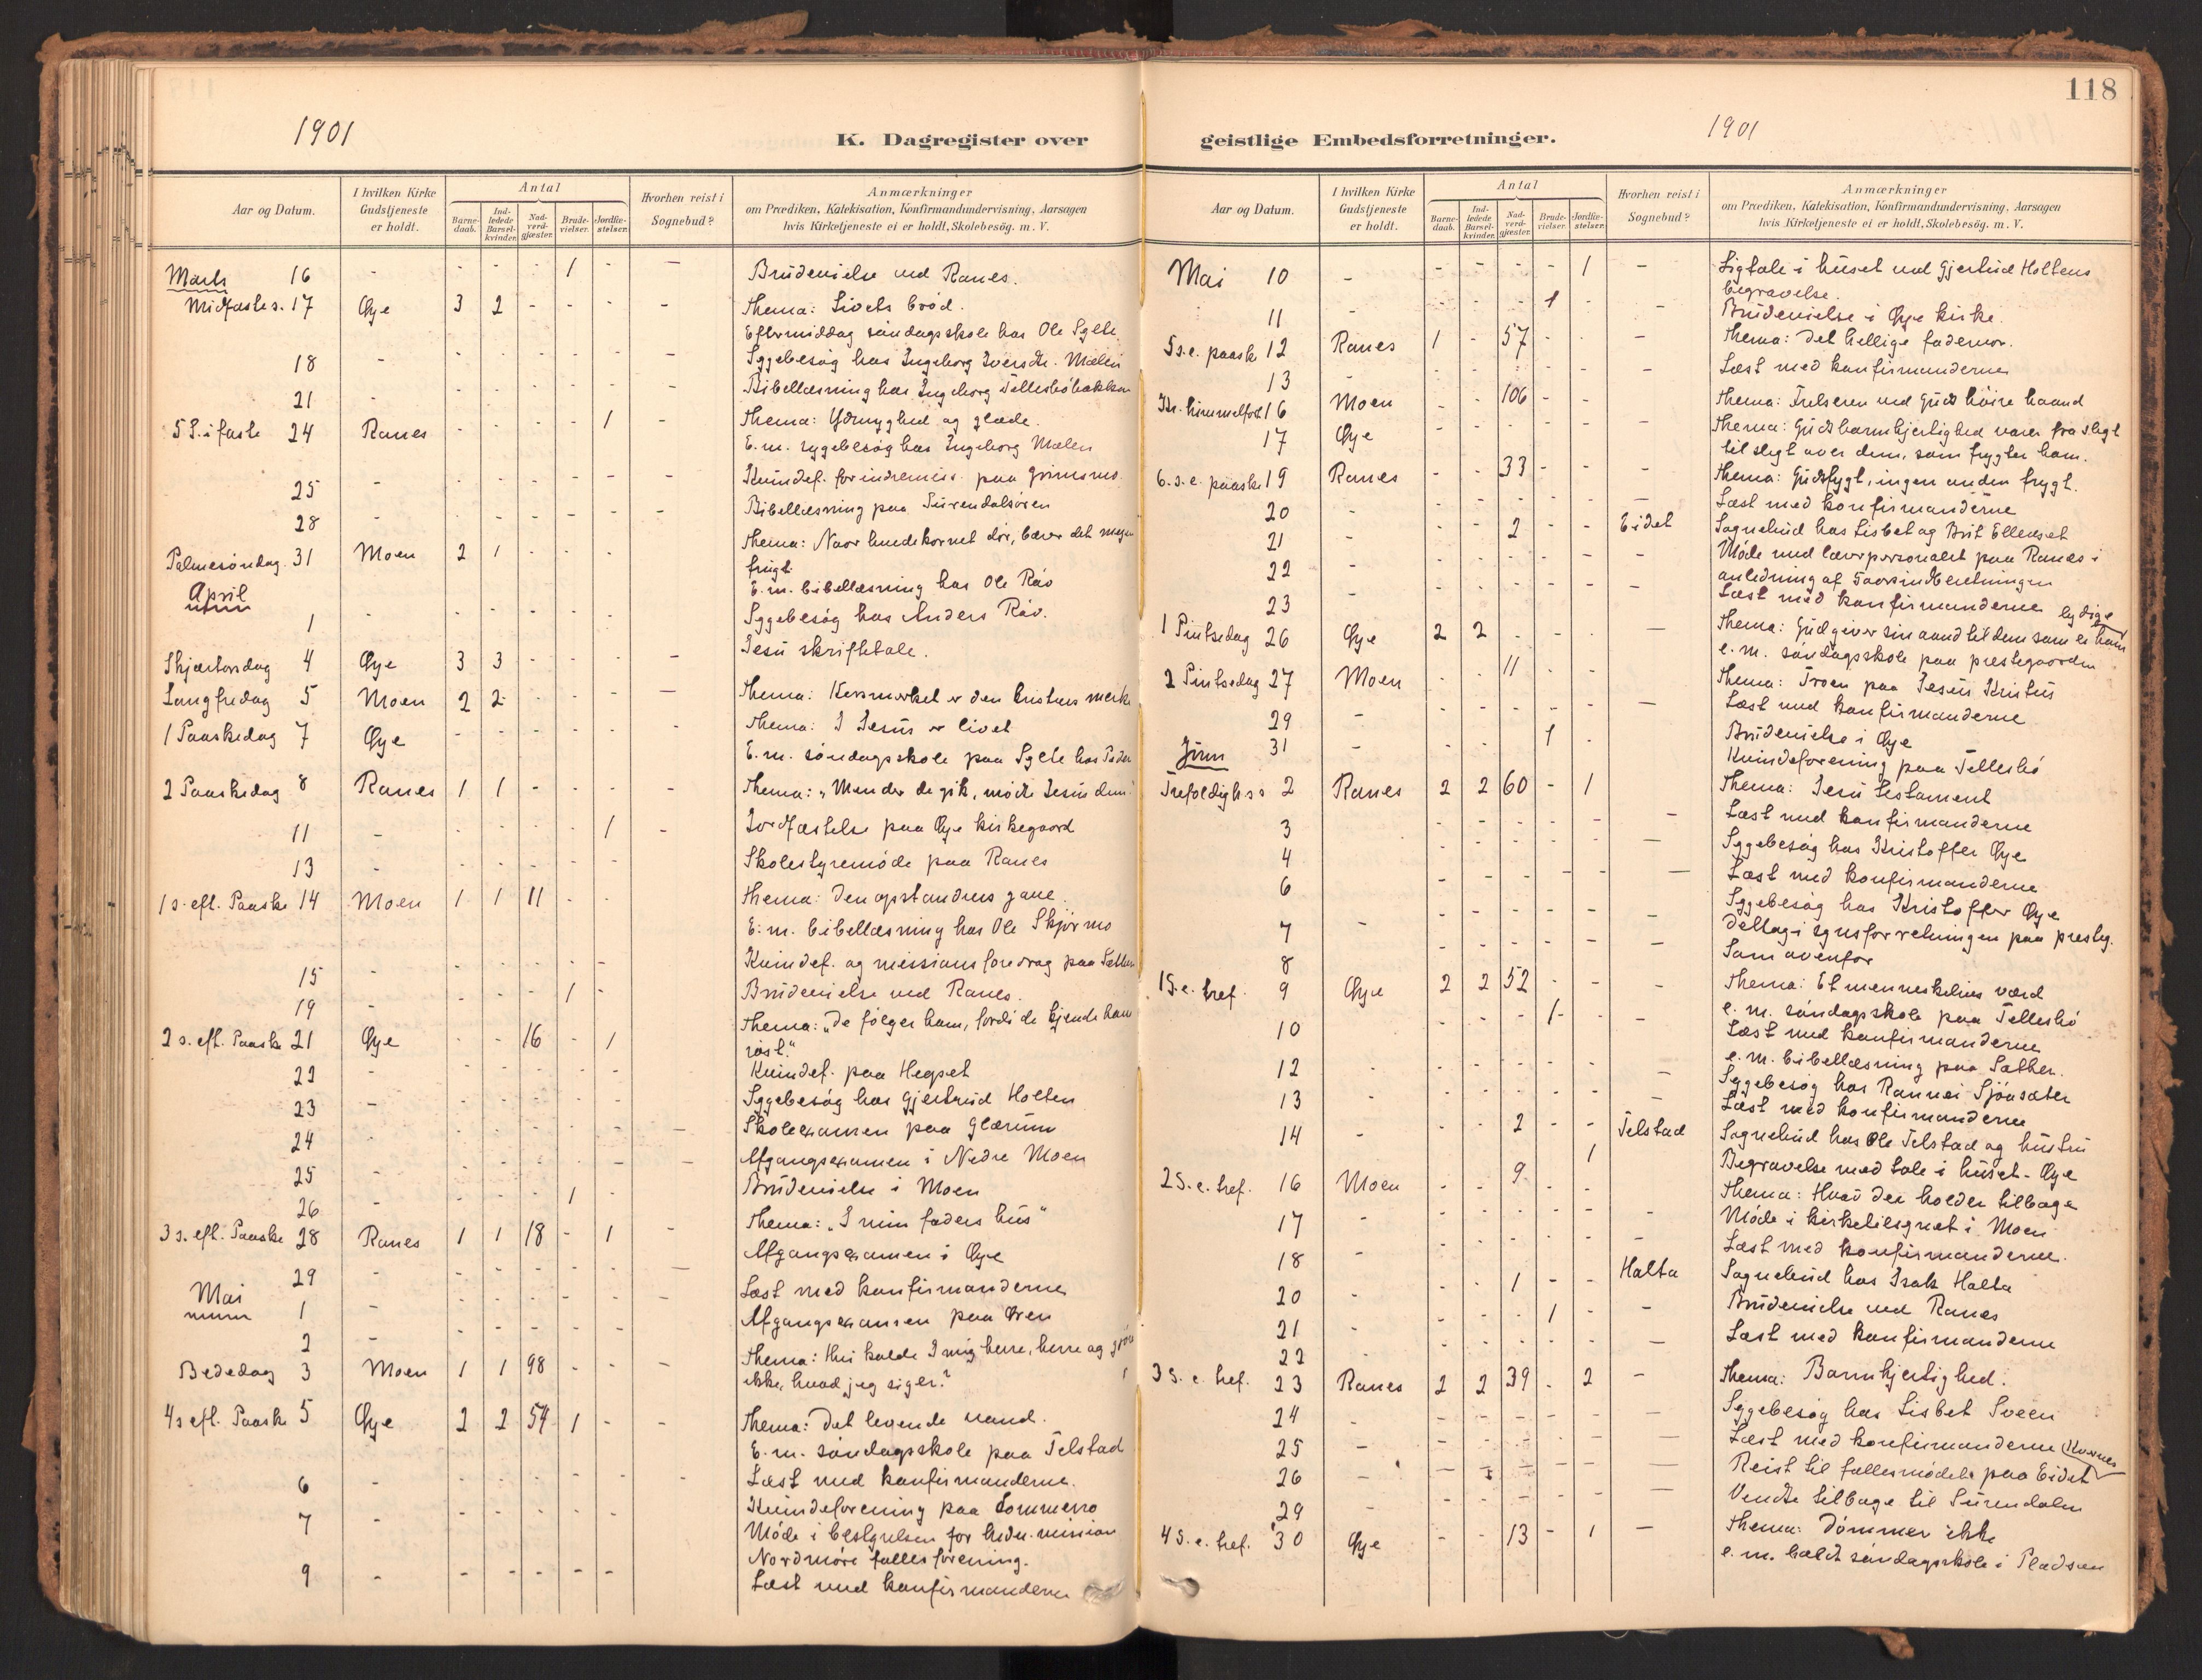 1901
K. Dagregister over
Aar og Datum.
I hvilken Kirke Gudstjeneste er holdt.
Antal
Barne-daab.
Ind-ledede Barsel-kvinder.
Nad-verd-gjæster.
Brude-vielser.
Jordfæ-stelser.
Hvorhen reist i Sognebud?
Anmærkninger
om Prædiken, Katekisation, Konfirmandundervisning, Aarsagen
hvis Kirketjeneste ei er holdt, Skolebesög. m. V.
Marts 16 - - - - 1 - — Brudevielse ved Ranes.
Midfastes. 17 Øye 3 2 - - - - Thema: Livets brød.
Eftermiddag søndagsskole hos Ole Sylte
18 - - - - - - - Sygebesøg hos Ingeborg Iversdtr. Mælen
21 - - - - - - - Bibellæsning hos Ingeborg Telleshøbakken
5 S. i faste 24 Ranes 1 - Thema: Ydmyghed og glæde.
E.m. sygebesøg hos Ingeborg Mælen
25 - - - - - - - Kvindef. for indremiss. paa Grimsmo.
28 - - - - - - - Bibellæsning paa Surendalsøren
Palmesøndag 31 Moen 2 1 - - - Thema: Naar hvedekornet dør, bærer det megen
frugt.
E.m. bibellæsning hos Ole Røv
April
1 - - - - - - Sygebesøg hos Anders Røv.
Skjærtorsdag 4 Øye 3 3 - - - - Jesu skriftetale.
Langfredag 5 Moen 2 2 - - - — Thema: Korsmerket er den kristnes merke
1 Paaskedag 7 Øye - - - - - - Thema: I Jesus er livet
E.m. søndagsskole paa Sylte hos Peder
2 Paaskedag 8 Ranes 1 1 - - - - Thema: "Men der de gik, mødte Jesus dem"
11 - - - - - 1 - Jordfæstelse paa Øye kirkegaard
13 - - - - - - Skolestyremøde paa Ranes
1 s. eft. Paaske 14 Moen 1 1 11 - - Thema: Den opstandnes gave.
E.m. bibellæsning hos Ole Skjørmo
15 - - - - - - Kvindef. og missionsforedrag paa Sæther
19 - - - - 1 - Brudevielse ved Ranes.
2 s. eft. Paaske 21 Øye - - 16 - 1 Thema: "De følger ham, fordi de kjende hans
røst."
22 - - - - - - Kvindef. paa Hegset
23 - - - - - - Sygebesøg hos Gjertrud Holten
24 - - - - - - — Skoleexamen paa Glærum
25 - - - - - — Afgangsexamen i Nedre Moen
26 - - - - 1 - Brudevielse i Moen
3 s. eft. Paaske 28 Ranes 1 1 18 - 1 - Thema: "I min faders hus"
29 - - - - - - — Afgangsexamen i Øye
Mai
1 - - - - - - - Læst med konfirmanderne
2 - - - - - - Afgangsexamen paa Øren
Bededag 3 Moen 1 1 98 - - - Thema: Hvi kalde I mig herre, herre og gjøre
ikke, hvad jeg siger?
4 s eft. Paaske 5 Øye 2 2 54 1 - - Thema: Det levende vand.
E.m. søndagsskole paa Telstad
6 - - - - - - - Læst med konfirmanderne.
7 - - - - - - Kvindeforening paa Sommerro
Møde i bestyrelsen for hedn. mission
Nordmøre fællesforening.
9 - - - - - - Læst med konfirmanderne
118
1901
geistlige Embedsforretninger.
Aar og Datum.
I hvilken Kirke Gudstjeneste er holdt.
Antal
Barne-daab.
Ind-ledede Barsel-kvinder.
Nad-verd-gjæster.
Brude-vielser.
Jordfæ-stelser.
Hvorhen reist i Sognebud?
Anmærkninger
om Prædiken, Katekisation, Konfirmandundervisning, Aarsagen
hvis Kirketjeneste ei er holdt, Skolebesög. m. V.
Mai 10 - - - - - 1 - Ligtale i huset ved Gjertrud Holtens
begravelse.
11 - - - - 1 - - Brudevielse i Øye kirke.
5 s.e. paaske 12 Ranes 1 - 57 - - — Thema: Det hellige fadervor.
13 - - - - - - - Læst med konfirmanderne
Kr. himmelfart 16 Moen - - 106 - - - Thema: Frelseren ved Guds høire haand
17 Øye - - - - - - Thema: Guds barmhjertighed varer fra slegt
til slegt over dem, som frygter ham.
6. s.e. paaske 19 Ranes - - 33 - - - Thema: Gudsfrygt, ingen anden frygt.
20 - - - - - — Læst med konfirmanderne
21 - - - 2 - - Eidet Sognebud hos Lisbet og Brit Ellevset
22 - - - - - - - Møde med lærerpersonalet paa Ranes i
anledning af Aarsindberetningen
23 - - - - - - - Læst med konfirmanderne
1 Pintsedag 26 Øye 2 2 - - - — Thema: Gud giver sin aand til dem som er ham lydige
e.m. søndagsskole paa prestegaarden
2 Pintsedag 27 Moen - - 11 - - Thema: Troen paa Jesus Kristus
29 - - - - - - — Læst med konfirmanderne
31 - - - - 1 - Brudevielse i Øye
Juni
Kvindeforening paa Telleshø
Trefoldighs s 2 Ranes 2 2 60 - 1 Thema: Jesu testament
3 - - - - - - Læst med konfirmanderne
4 - - - - - — Sygebesøg hos Kristoffer Øye
6 - - - - - — Læst med konfirmanderne
Sygebesøg hos Kristoffer Øye
7 - - - - - - - Deltog i synsforretningen paa presteg.
8 - - - - - - Som ovenfor
1 S. e. tref. 9 Øye 2 2 52 - - - Thema: Et menneskelivs værd
e.m. søndagsskole paa Telleshø
10 - - - - 1 - Læst med konfirmanderne
e.m. bibellæsning paa Sæther.
12 - - - - - - — Sygebesøg hos Rannei Sjøasæter
13 - - - - - - - Læst med konfirmanderne
14 - - - 2 - - Telstad Sognebud hos Ole Telstad og hustru
1 Begravelse med tale i huset - Øye
2 S. e. tref. 16 Moen - - 9 - - Thema: Hvad der holder tilbage
17 - - - - - - Møde i kirketilsynet i Moen
18 - - - - - - - Læst med konfirmanderne.
20 - - - 1 - - Halta Sognebud hos Isak Halta
21 - - - - 1 - - Brudevielse ved Ranes
22 - - - - - — Læst med konfirmanderne
3 S. e. tref. 23 Ranes 2 2 39 - 2 - Thema: Barmhjertighed.
24 - - - - - - — Sygebesøg hos Lisbet Sveen
25 - - - - - - — Læst med konfirmanderne
26 - - - - - - — Reist til fællesmødet paa Eidet (Kvernes
29 - - - - - - — Vendte tilbage til Surendalen
4 S. e. tref. 30 Øye - - 13 - 1 — Thema: Dømmer ikke
e.m. holdt søndagsskole i Pladsen